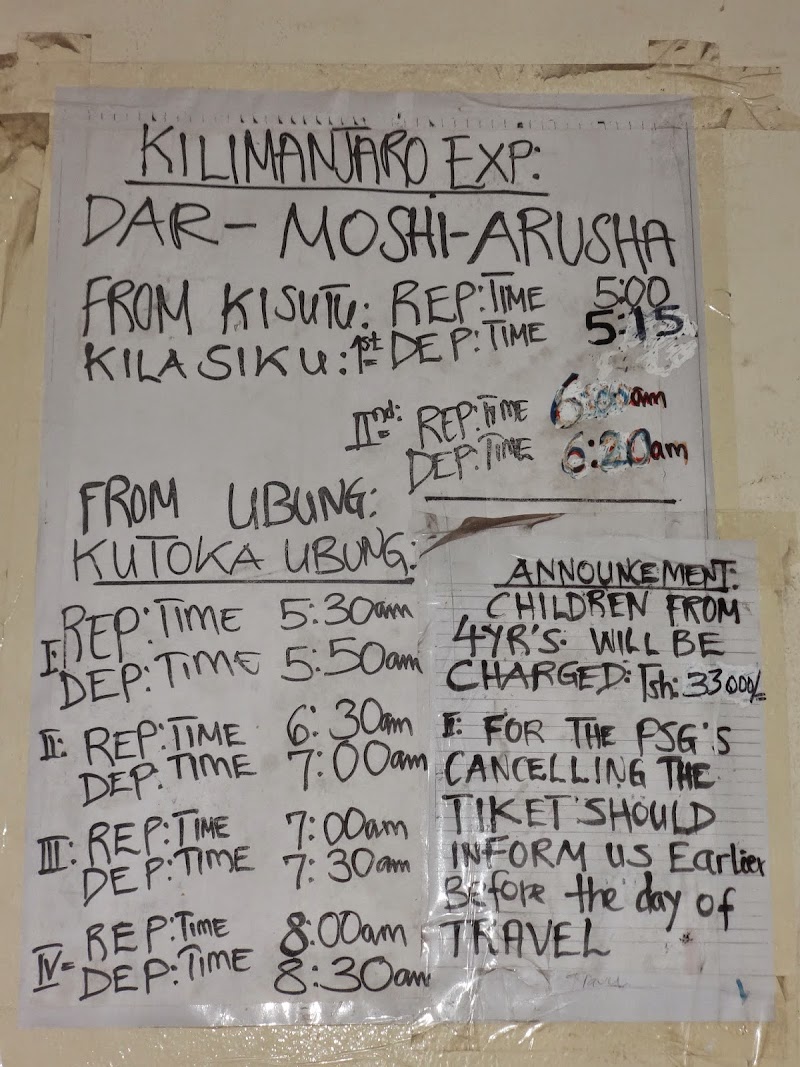 KILIMANJARO EXP:
DAR - MOSHI - ARUSHA
FROM KISUTU: REP:TIME 5:00
KILA SIKU: 1st DEP:TIME 5:15
IInd: REP:TIME 6:00am
DEP:TIME 6:20am
FROM UBUNG:
KUTOKA UBUNG:
I: REP:TIME 5:30am
DEP:TIME 5:50am
II: REP:TIME 6:30am
DEP:TIME 7:00am
III: REP:TIME 7:00am
DEP:TIME 7:30am
IV= REP:TIME 8:00am
DEP:TIME 8:30am
ANNOUNKEMENT:
CHILDREN FROM
4YR'S. WILL BE
CHARGED: Tsh: 33000/=
II: FOR THE PSG'S
CANCELLING THE
TIKET SHOULD
INFORM US Earlier
Before the day of
TRAVEL